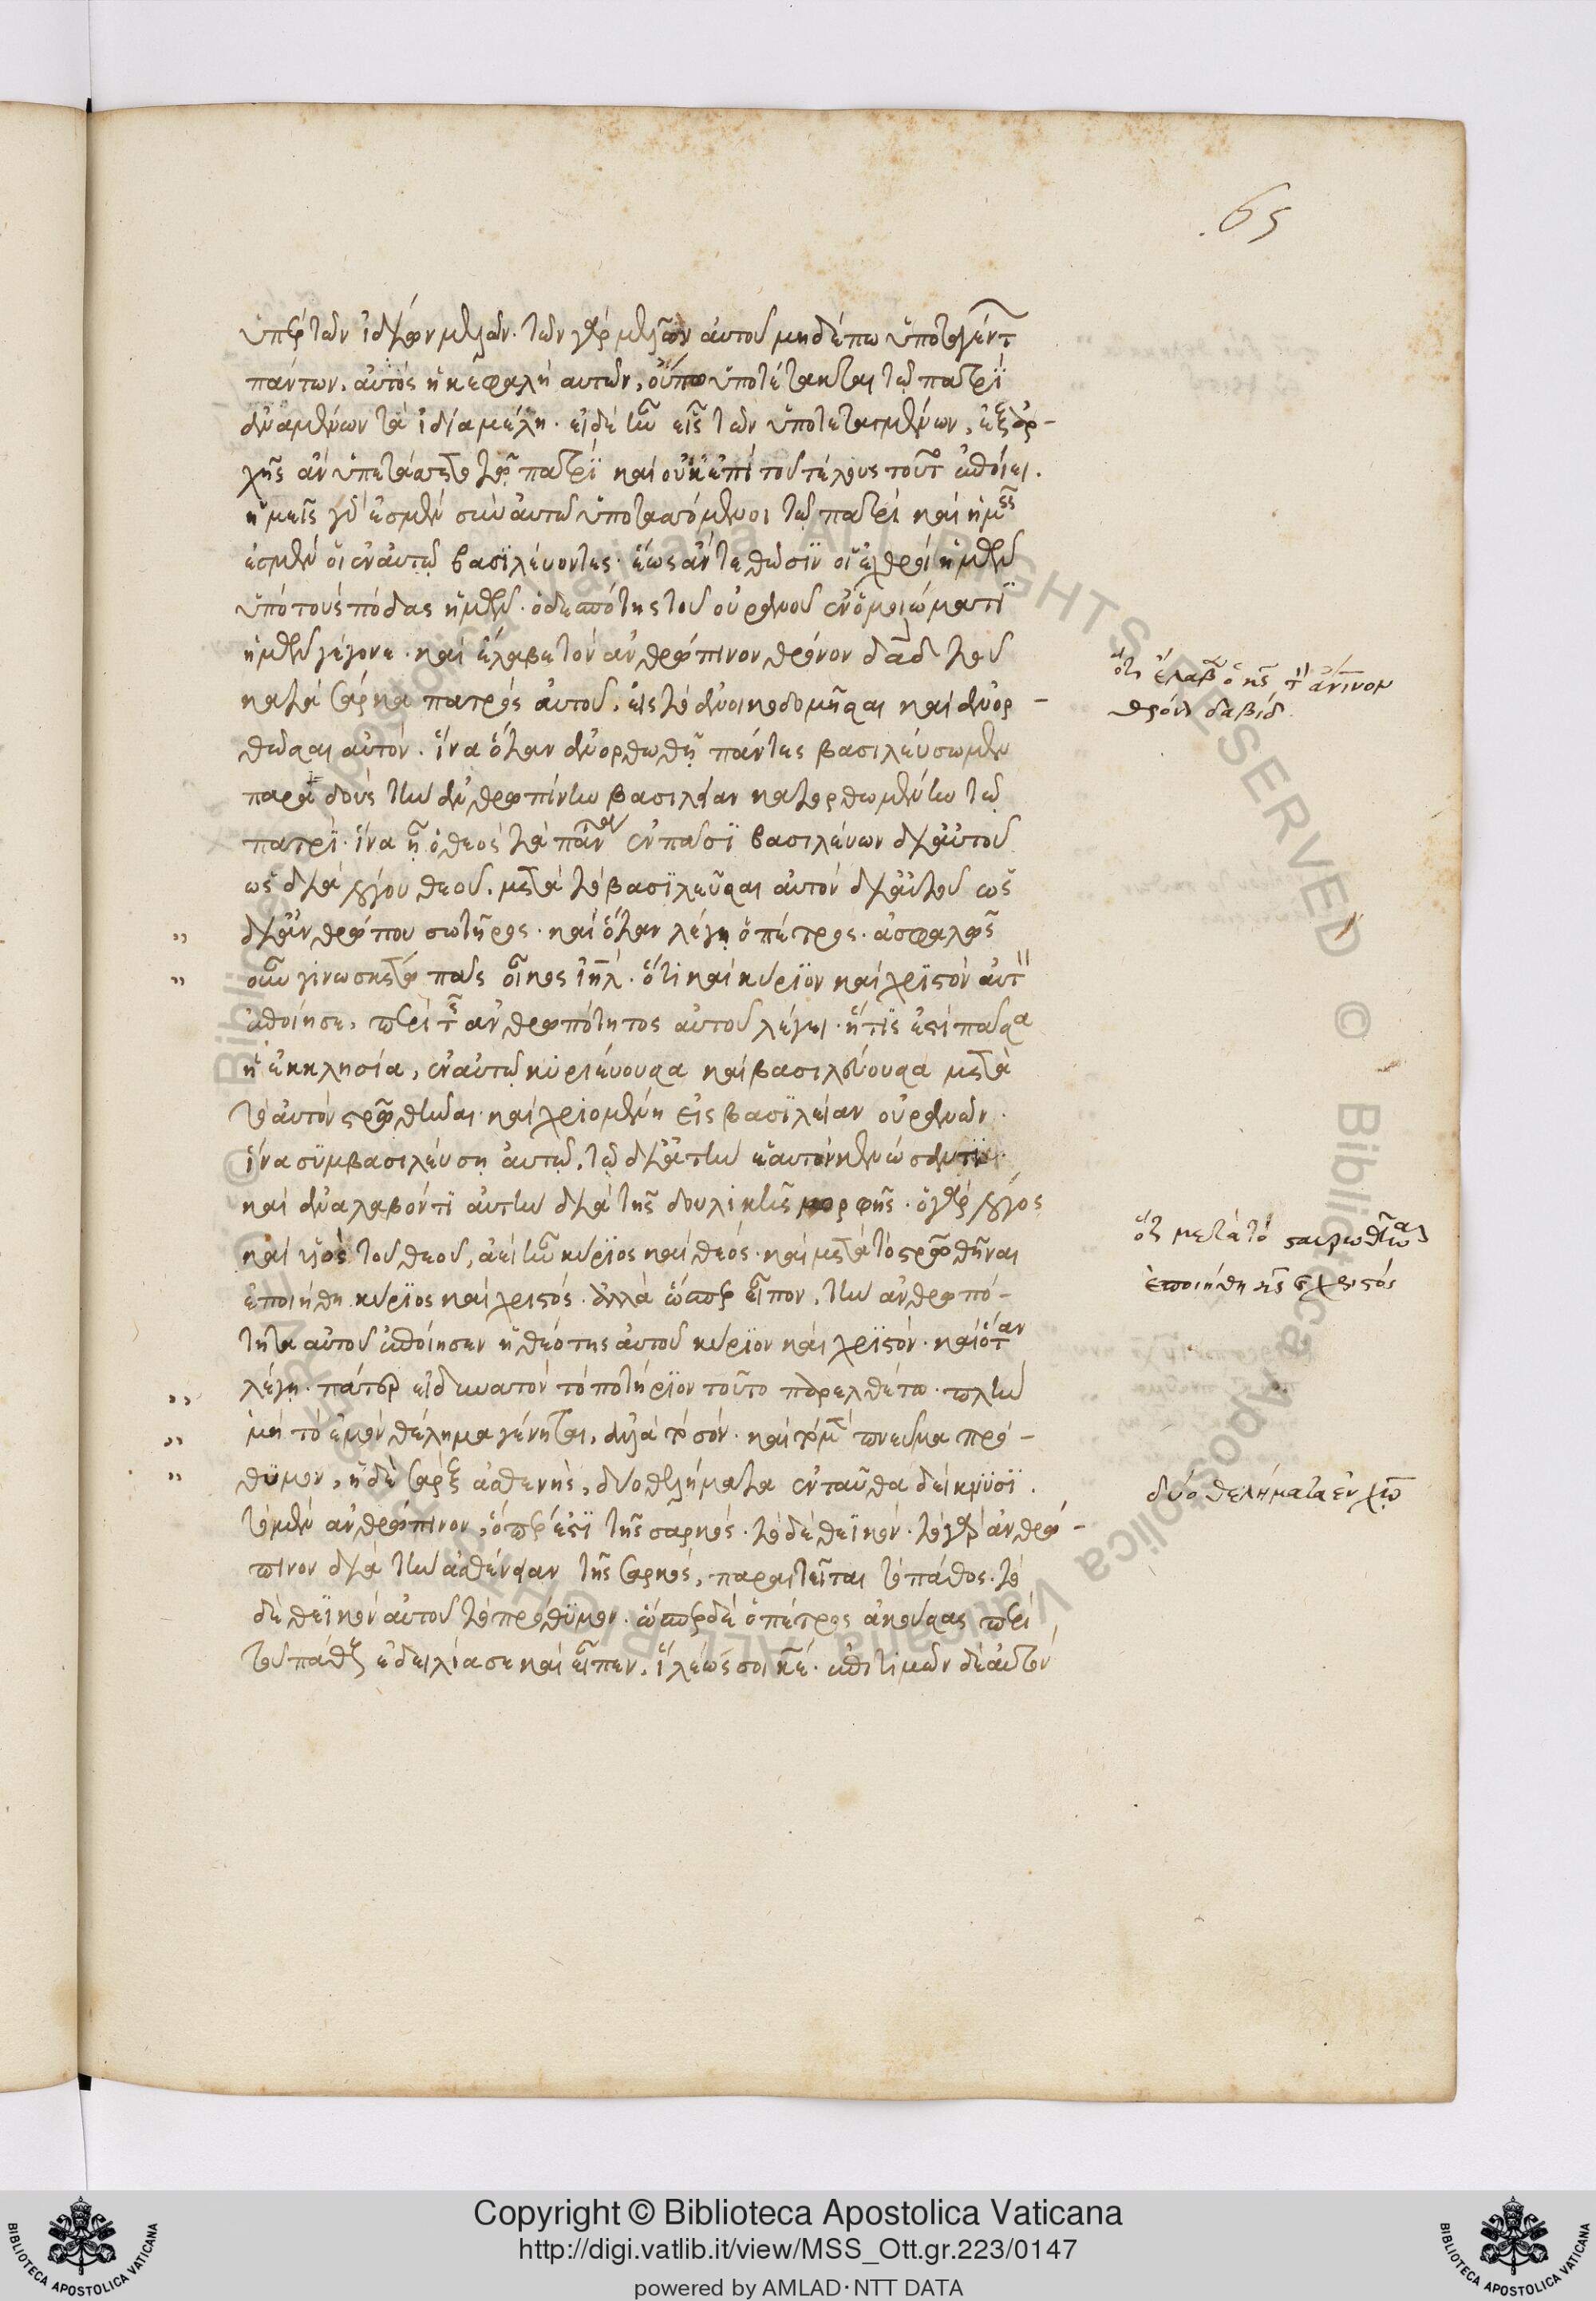 65
ὑπὲρ τῶν ἰδίων μελῶν. τῶν γὰρ μελῶν αὐτοῦ μηδέπω ὑποταγέντ
πάντων, αὐτὸς ἡ κεφαλὴ αὐτῶν, οὔπω ὑποτέτακται τῷ πατρὶ
ἀναμένων τὰ ἰδία μέλη. εἰ δὲ ἦν εἷς τῶν ὑποτεταγμένων, ἐξ ἀρ-
χῆς ἂν ὑπετάσσετο τῷ πατρὶ καὶ οὐκ ἐπὶ τοῦ τέλους τοῦτ ἐποίει.
ἡμεῖς γάρ ἐσμεν σὺν αὐτῷ ὑποτασσόμενοι τῷ πατρὶ καὶ ἡμεῖς
ἐσμὲν οἱ ἐν αὐτῷ βασιλεύοντες. ἕως ἂν τεθῶσιν οἱ ἐχθροὶ ἡμῶν
ὑπὸ τοὺς πόδας ἡμῶν. ὁ δεσπότης τοῦ οὐρανοῦ ἐν ὁμοιώματι
ἡμῶν γέγονε. καὶ ἔλαβε τὸν ἀνθρώπινον θρόνον δαδ τοῦ
κατὰ σάρκα πατρὸς αὐτοῦ, εἰς τὸ ἀνοικοδομῆσαι καὶ ἀνορ-
θῶσαι αὐτόν. ἵνα ὅταν ἀνορθωθῇ πάντες βασιλεύσωμεν
παραδοὺς τὴν ἀνθρωπίνην βασιλείαν κατορθωμένην τῷ
πατρί. ἵνα ᾖ ὁ θεὸς τὰ πάντα ἐν πᾶσι βασιλεύων δι' αὐτοῦ
ὡς διὰ λόγου θεοῦ, μετὰ τὸ βασιλεῦσαι αὐτὸν δι' αὐτοῦ ὡς
δι' ἀνθρώπου σωτῆρος. καὶ ὅταν λέγῃ ὁ πέτρος. ἀσφαλῶς
οὖν γινωσκέτω πᾶς οἶκος ἰηλ. ὅτι καὶ κύριον καὶ χριστὸν αὐτὸν
ἐποίησε, περὶ τῆς ἀνθρωπότητος αὐτοῦ λέγει. ἥτις ἐστὶ πᾶσα
ἡ ἐκκλησία, ἐν αὐτῷ κυριεύουσα καὶ βασιλεύουσα μετὰ
τὸ αὐτὸν στρωθῆναι. καὶ χριομένη εἰς βασιλείαν οὐρανῶν.
ἵνα συμβασιλεύσῃ αὐτῷ, τῷ δι' αὐτὴν ἑαυτὸν κενώσαντι
καὶ ἀναλαβόντι αὐτὴν διὰ τῆς δουλικῆς μορφῆς. ὁ γὰρ λόγος
καὶ υἱὸς τοῦ θεοῦ, ἀεὶ ἦν κύριος καὶ θεός. καὶ μετὰ τὸ στρωθῆναι
ἐποιήθη κύριος καὶ χριστός. ἀλλὰ ὥσπερ εἶπον, τὴν ἀνθρωπό-
τητα αὐτοῦ ἐποίησεν ἡ θεότης αὐτοῦ κύριον καὶ χριστόν. καὶ ὅταν
λέγῃ. πάτερ εἰ δυνατὸν τὸ ποτήριον τοῦτο παρελθέτω. πλὴν
μὴ τὸ ἐμὸν θέλημα γένηται, ἀλλὰ τὸ σόν. καὶ τὸ μὲν πνεῦμα πρό-
θυμον, ἡ δὲ σὰρξ ἀσθενής, δύο θελήματα ἐνταῦθα δείκνυσι.
τὸ μὲν ἀνθρώπινον, ὅπερ ἐστὶ τῆς σαρκός. τὸ δὲ θεϊκόν. τὸ γὰρ ἀνθρώ-
πινον διὰ τὴν ἀσθένειαν τῆς σαρκός, παραιτεῖται τὸ πάθος. τὸ
δὲ θεϊκὸν αὐτοῦ τὸ πρόθυμον. ὥσπερ δὲ ὁ πέτρος ἀκούσας περὶ
τοῦ πάθους ἐδειλίασε καὶ εἶπεν, ἵλεώς σοι κε. ἐπιτιμῶν δὲ αὐτὸν
ὅτι ἔλαβεν ὁ κς τὸν ἀνινον
θρόνον δαβίδ.
ὅτι μετὰ τὸ σταυρωθῆναι
ἐποιήθη κς χριστός
δύο θελήματα ἐν χῷ
Copyright © Biblioteca Apostolica Vaticana
http://digi.vatlib.it/view/MSS_Ott.gr.223/0147
powered by AMLAD·NTT DATA